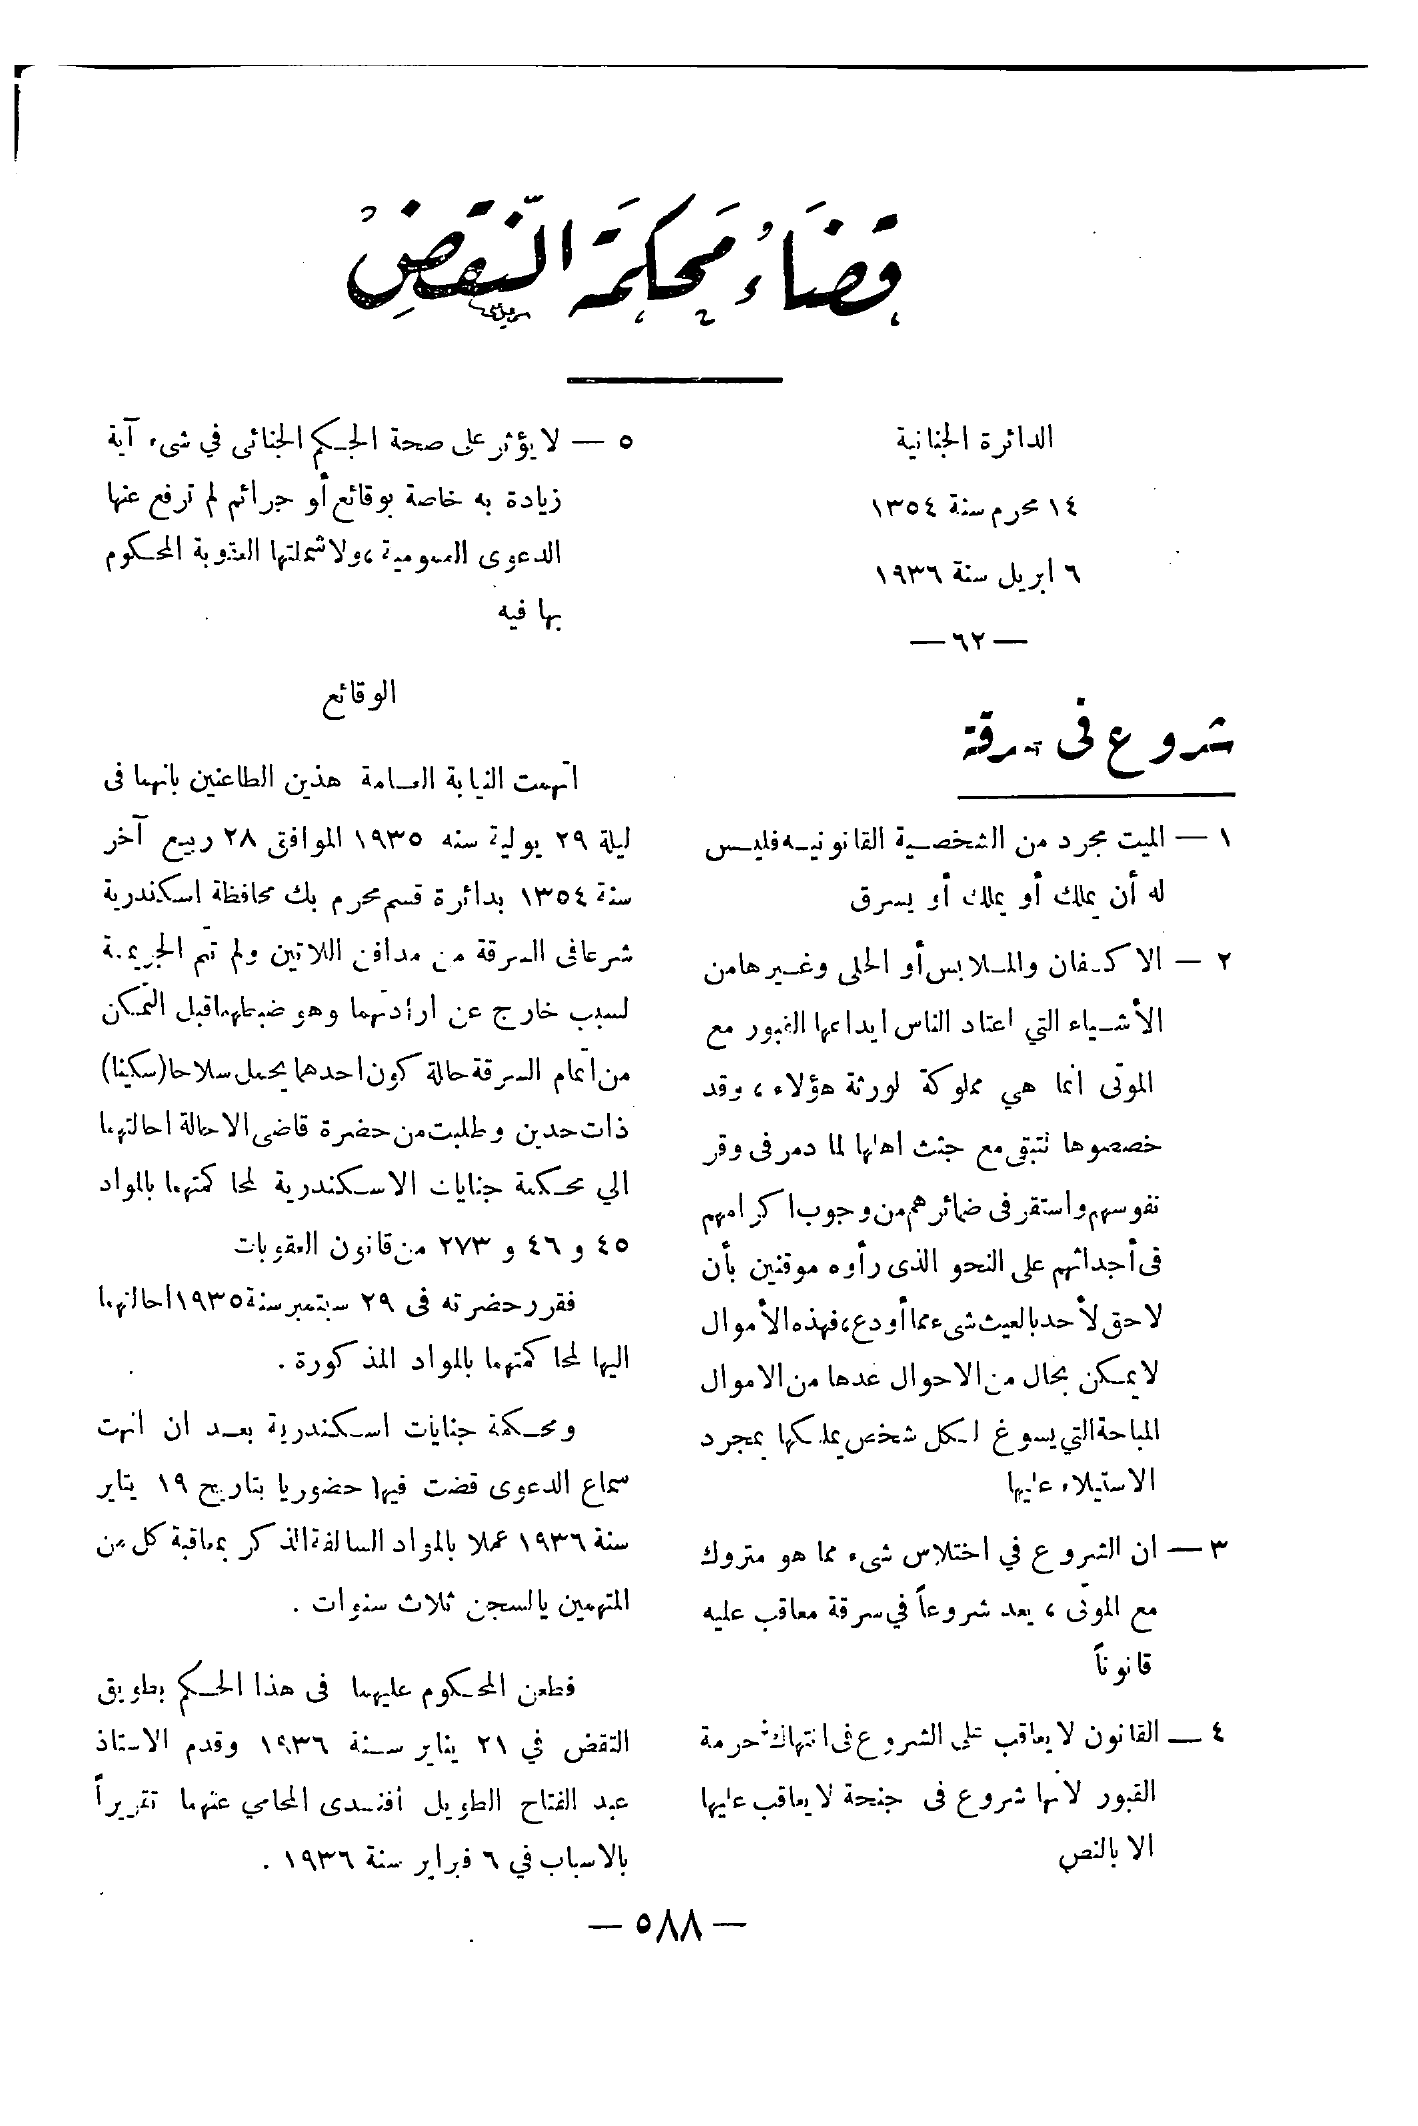 قضاء محكمة النقض
الدائرة الجنائية
١٤ محرم سنة ١٣٥٤
٦ ابريل سنة ١٩٣٦
— ٦٢ —
شروع فى سرقة
١ — الميت مجرد من الشخصية القانونية فليس
له أن يملك أو يملك أو يسرق
٢ — الاكفان والملابس أو الحلى وغيرها من
الأشياء التي اعتاد الناس ايداعها القبور مع
الموتى انما هي مملوكة لورثة هؤلاء ، وقد
خصصوها لتبقى مع جثث اهلها لما دمر فى وقر
نفوسهم واستقر فى ضمائرهم من وجوب اكرامهم
فى أجداثهم على النحو الذى رأوه موقنين بأن
لا حق لأحد بالعيث شىء مما أودع ، فهذه الأموال
لا يمكن بحال من الاحوال عدها من الاموال
المباحة التي يسوغ لكل شخص يملكها بمجرد
الاستيلاء عليها
٣ — ان الشروع في اختلاس شىء مما هو متروك
مع الموتى ، يعد شروعاً في سرقة معاقب عليه
قانوناً
٤ — القانون لا يعاقب على الشروع فى انتهاك حرمة
القبور لأنها شروع فى جنحة لا يعاقب عليها
الا بالنص
٥ — لا يؤثر على صحة الحكم الجنائى في شىء آية
زيادة به خاصة بوقائع أو جرائم لم ترفع عنها
الدعوى العمومية ، ولا شملتها العقوبة المحكوم
بها فيه
الوقائع
اتهمت النيابة العامة هذين الطاعنين بانهما فى
ليلة ٢٩ يولية سنه ١٩٣٥ الموافق ٢٨ ربيع آخر
سنة ١٣٥٤ بدائرة قسم محرم بك محافظة اسكندرية
شرعا فى السرقة من مدافن اللاتين ولم تتم الجريمة
لسبب خارج عن ارادتهما وهو ضبطهما قبل التمكن
من اتمام السرقة حالة كون احدهما يحمل سلاحا (سكينا)
ذات حدين وطلبت من حضرة قاضى الاحالة احالتهما
الي محكمة جنايات الاسكندرية لمحاكمتهما بالمواد
٤٥ و ٤٦ و ٢٧٣ من قانون العقوبات
فقرر حضرته فى ٢٩ سبتمبر سنة ١٩٣٥ احالتهما
اليها لمحاكمتهما بالمواد المذكورة .
ومحكمة جنايات اسكندرية بعد ان انهت
سماع الدعوى قضت فيها حضوريا بتاريخ ١٩ يناير
سنة ١٩٣٦ عملا بالمواد السالفة الذكر بمعاقبة كل من
المتهمين بالسجن ثلاث سنوات .
فطعن المحكوم عليهما فى هذا الحكم بطريق
النقض في ٢١ يناير سنة ١٩٣٦ وقدم الاستاذ
عبد الفتاح الطويل أفندى المحامي عنهما تقريراً
بالاسباب في ٦ فبراير سنة ١٩٣٦ .
— ٥٨٨ —